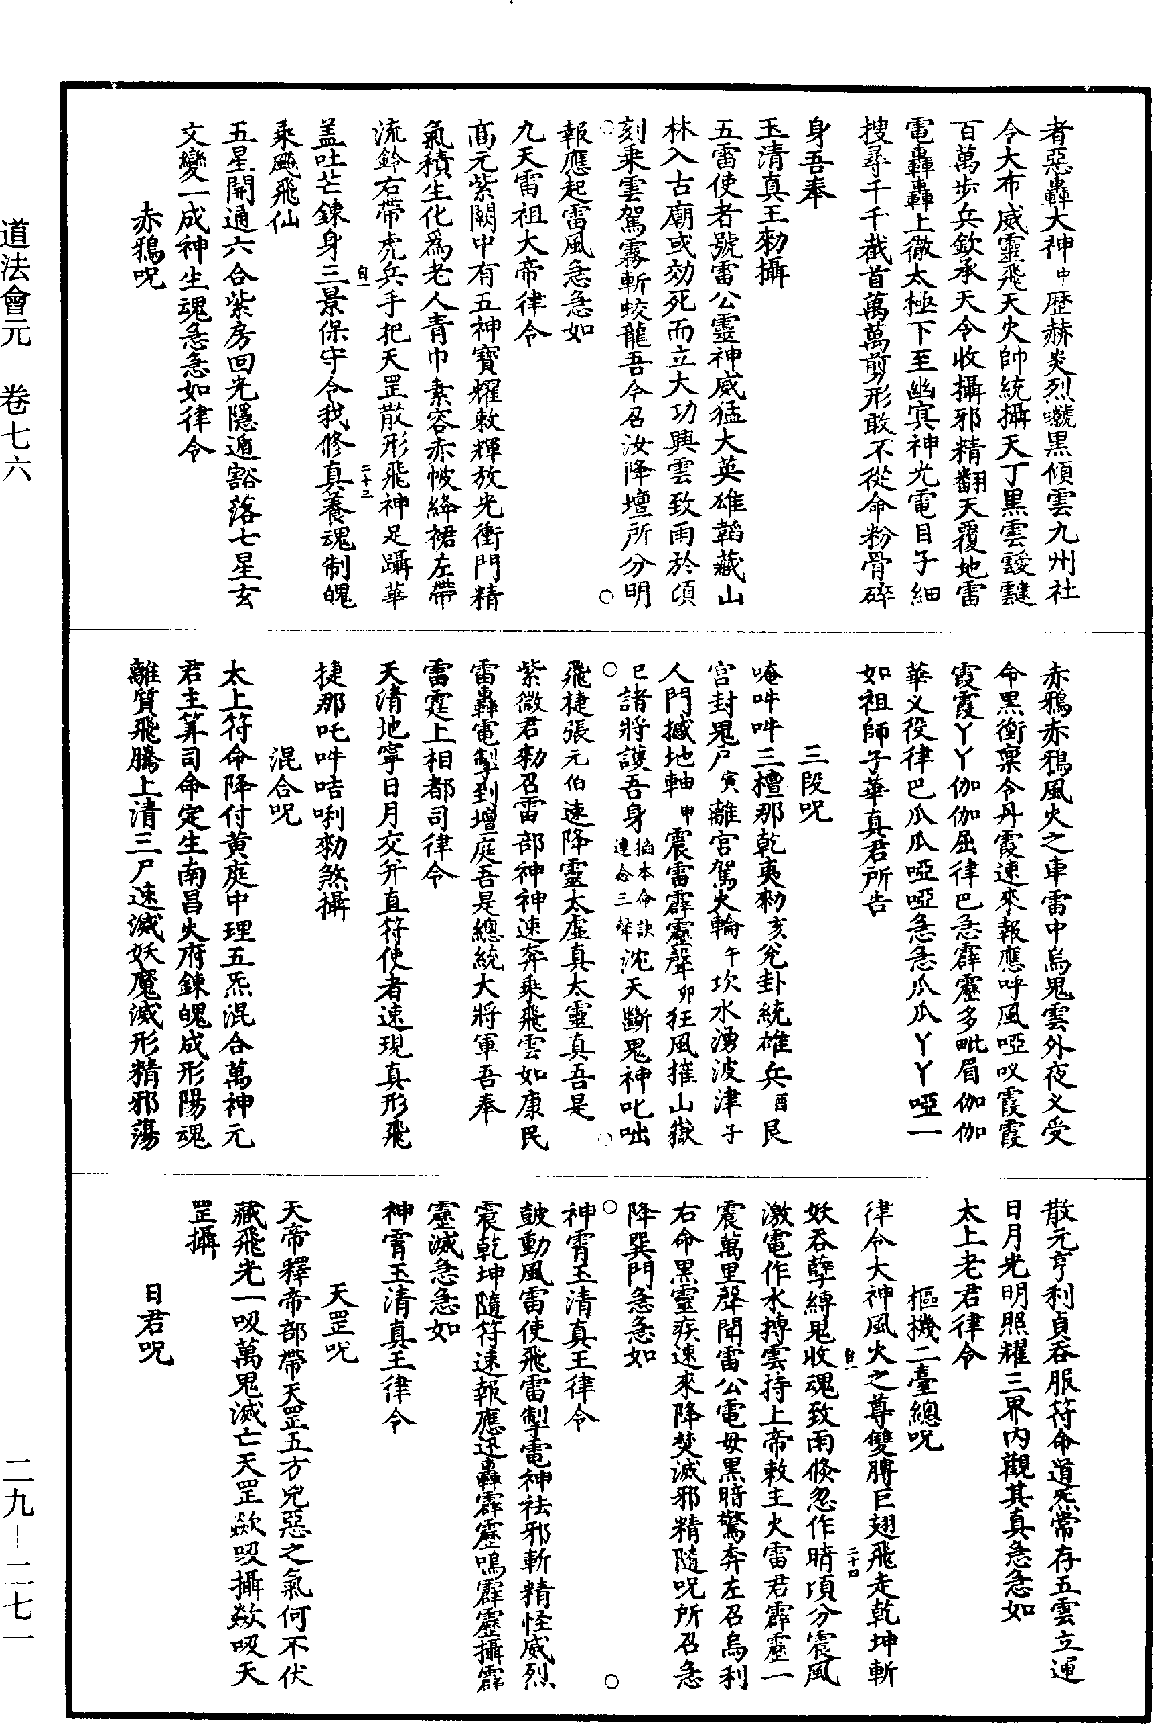 者惡轟大神中歷赫炎烈虩黑傾雲九州社
令大布威靈飛天火帥統攝天丁黑雲靉靆
百萬步兵欽承天令收攝邪精翻天覆地雷
電轟轟上徹太極下至幽冥神光電目子細
搜尋千千截首萬萬剪形敢不從命粉骨碎
身吾奉
玉清真王勑攝
五雷使者號雷公靈神威猛大英雄韜藏山
林入古廟或効死而立大功興雲致雨於頃
刻乘雲駕霧斬蛟龍吾今召汝降壇所分明
報應起雷風急急如
九天雷祖大帝律令
高元紫闕中有五神寶耀敕輝放光衝門精
氣積生化爲老人青巾素容赤帔絳裙左帶
流鈴右帶虎兵手把天罡散形飛神足躡華
盖吐芒鍊身三景保守令我修真養魂制魄
乘飈飛仙
五星開通六合紫房回光隱遁豁落七星玄
文變一成神生魂急急如律令
赤鴉呪
赤鴉赤鴉風火之車雷中烏鬼雲外夜乂受
命黑衝禀令丹霞速來報應呼風啞㕤霞霞
霞霞丫丫伽伽屈律巴急霹靂多毗眉伽伽
華乂役律巴瓜瓜啞啞急急瓜瓜丫丫啞一
如祖師子華真君所告
三段呪
唵吽吽三檀那乾夷勑亥兊卦統雄兵酉艮
宮封鬼户寅離宮駕火輪午坎水湧波津子
人門撼地軸申震雷霹靂聲卯狂風摧山嶽
巳諸將護吾身掐本命訣連念三聲沈天斷鬼神叱咄
飛捷張元伯速降靈太虛真太靈真吾是
紫微君勑召雷部神神速奔乘飛雲如康民
雷轟電掣到壇庭吾是總統大將軍吾奉
雷霆上相都司律令
天清地寧日月交并直符使者速現真形飛
捷那吒吽咭唎勑煞攝
混合呪
太上符命降付黄庭中理五炁混合萬神元
君主筭司命定生南昌火府鍊魄成形陽魂
離質飛騰上清三尸速滅妖魔滅形精邪蕩
散元亨利貞吞服符命道炁常存五雲立運
日月光明照耀三界内觀其真急急如
太上老君律令
樞機二臺總呪
律令大神風火之尊雙膊巨翅飛走乾坤斬
妖吞孽縛鬼收魂致雨倏忽作晴頃分震風
激電作水摶雲持上帝敕主火雷君霹靂一
震萬里聲聞雷公電母黑暗驚奔左召烏利
右命黑靈疾速來降焚滅邪精隨呪所召急
降巽門急急如
神霄玉清真王律令
皷動風雷使飛雷掣電神祛邪斬精怪威烈
震乾坤隨符速報應迅轟霹靂鳴霹靂攝霹
靂滅急急如
神霄玉清真王律令
天罡呪
天帝釋帝部帶天罡五方兇惡之氣何不伏
藏飛光一吸萬鬼滅亡天罡歘吸攝歘吸天
罡攝
日君呪
道法會元　卷七六
二九—二七一